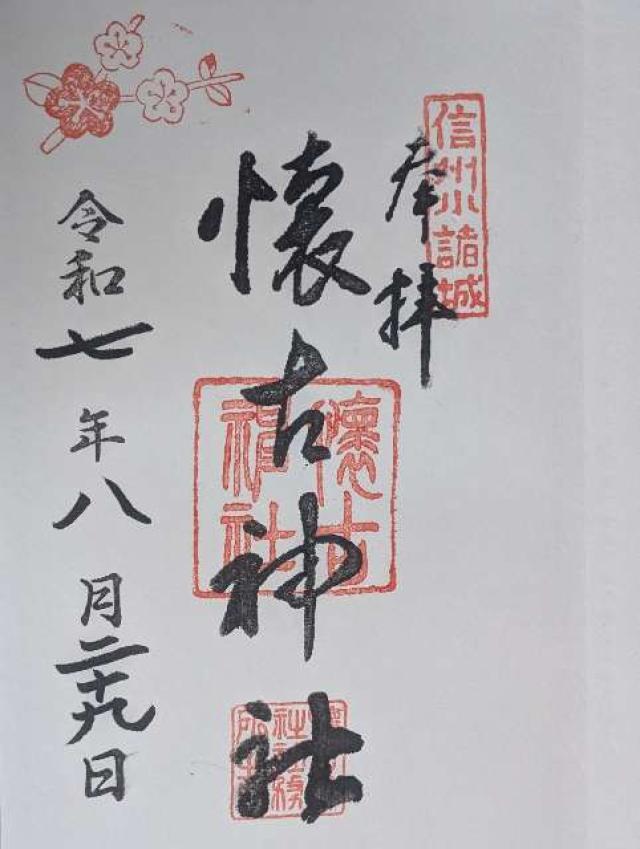 信州小諸城
奉拝
懐古神社
懐古神社
令和七年八月二十九日